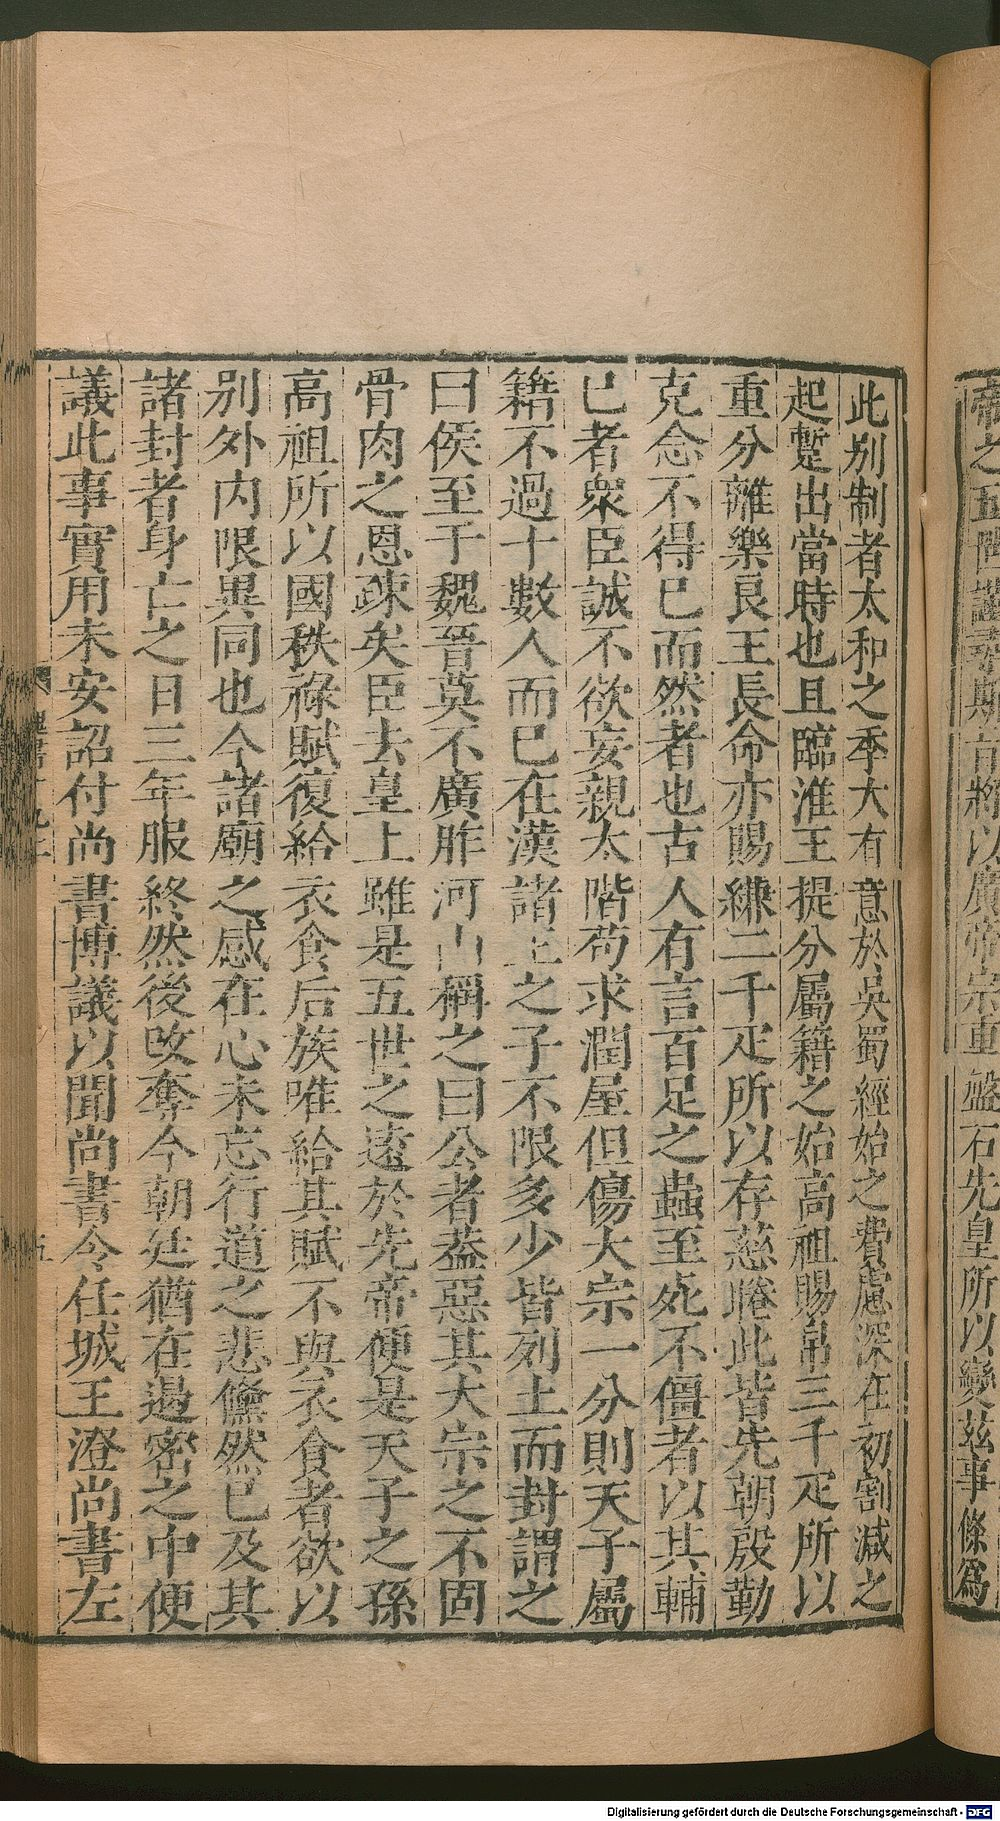 帝之五世謹尋斯旨將以廣帝宗重盤石先皇所以變茲事條爲
此別制者太和之季大有意於吳蜀經始之費慮深在初割減之
起蹔出當時也且臨淮王提分屬籍之始高祖賜帛三千疋所以
重分離樂良王長命亦賜縑二千疋所以存慈睠此皆先朝殷勤
克念不得已而然者也古人有言百足之蟲至死不僵者以其輔
已者衆臣誠不欲妄親太階苟求潤屋但傷大宗一分則天子屬
籍不過十數人而已在漢諸王之子不限多少皆列土而封謂之
曰侯至于魏晉莫不廣胙河山稱之曰公者葢惡其大宗之不固
骨肉之恩疎矣臣去皇上雖是五世之遠於先帝便是天子之孫
高祖所以國秩祿賦復給衣食后族唯給其賦不與衣食者欲以
別外内限異同也今諸廟之感在心未忘行道之悲儵然已及其
諸封者身亡之日三年服終然後改奪今朝廷猶在遏密之中便
議此事實用未安詔付尚書博議以聞尚書令任城王澄尚書左
五
Digitalisierung gefördert durch die Deutsche Forschungsgemeinschaft - DFG